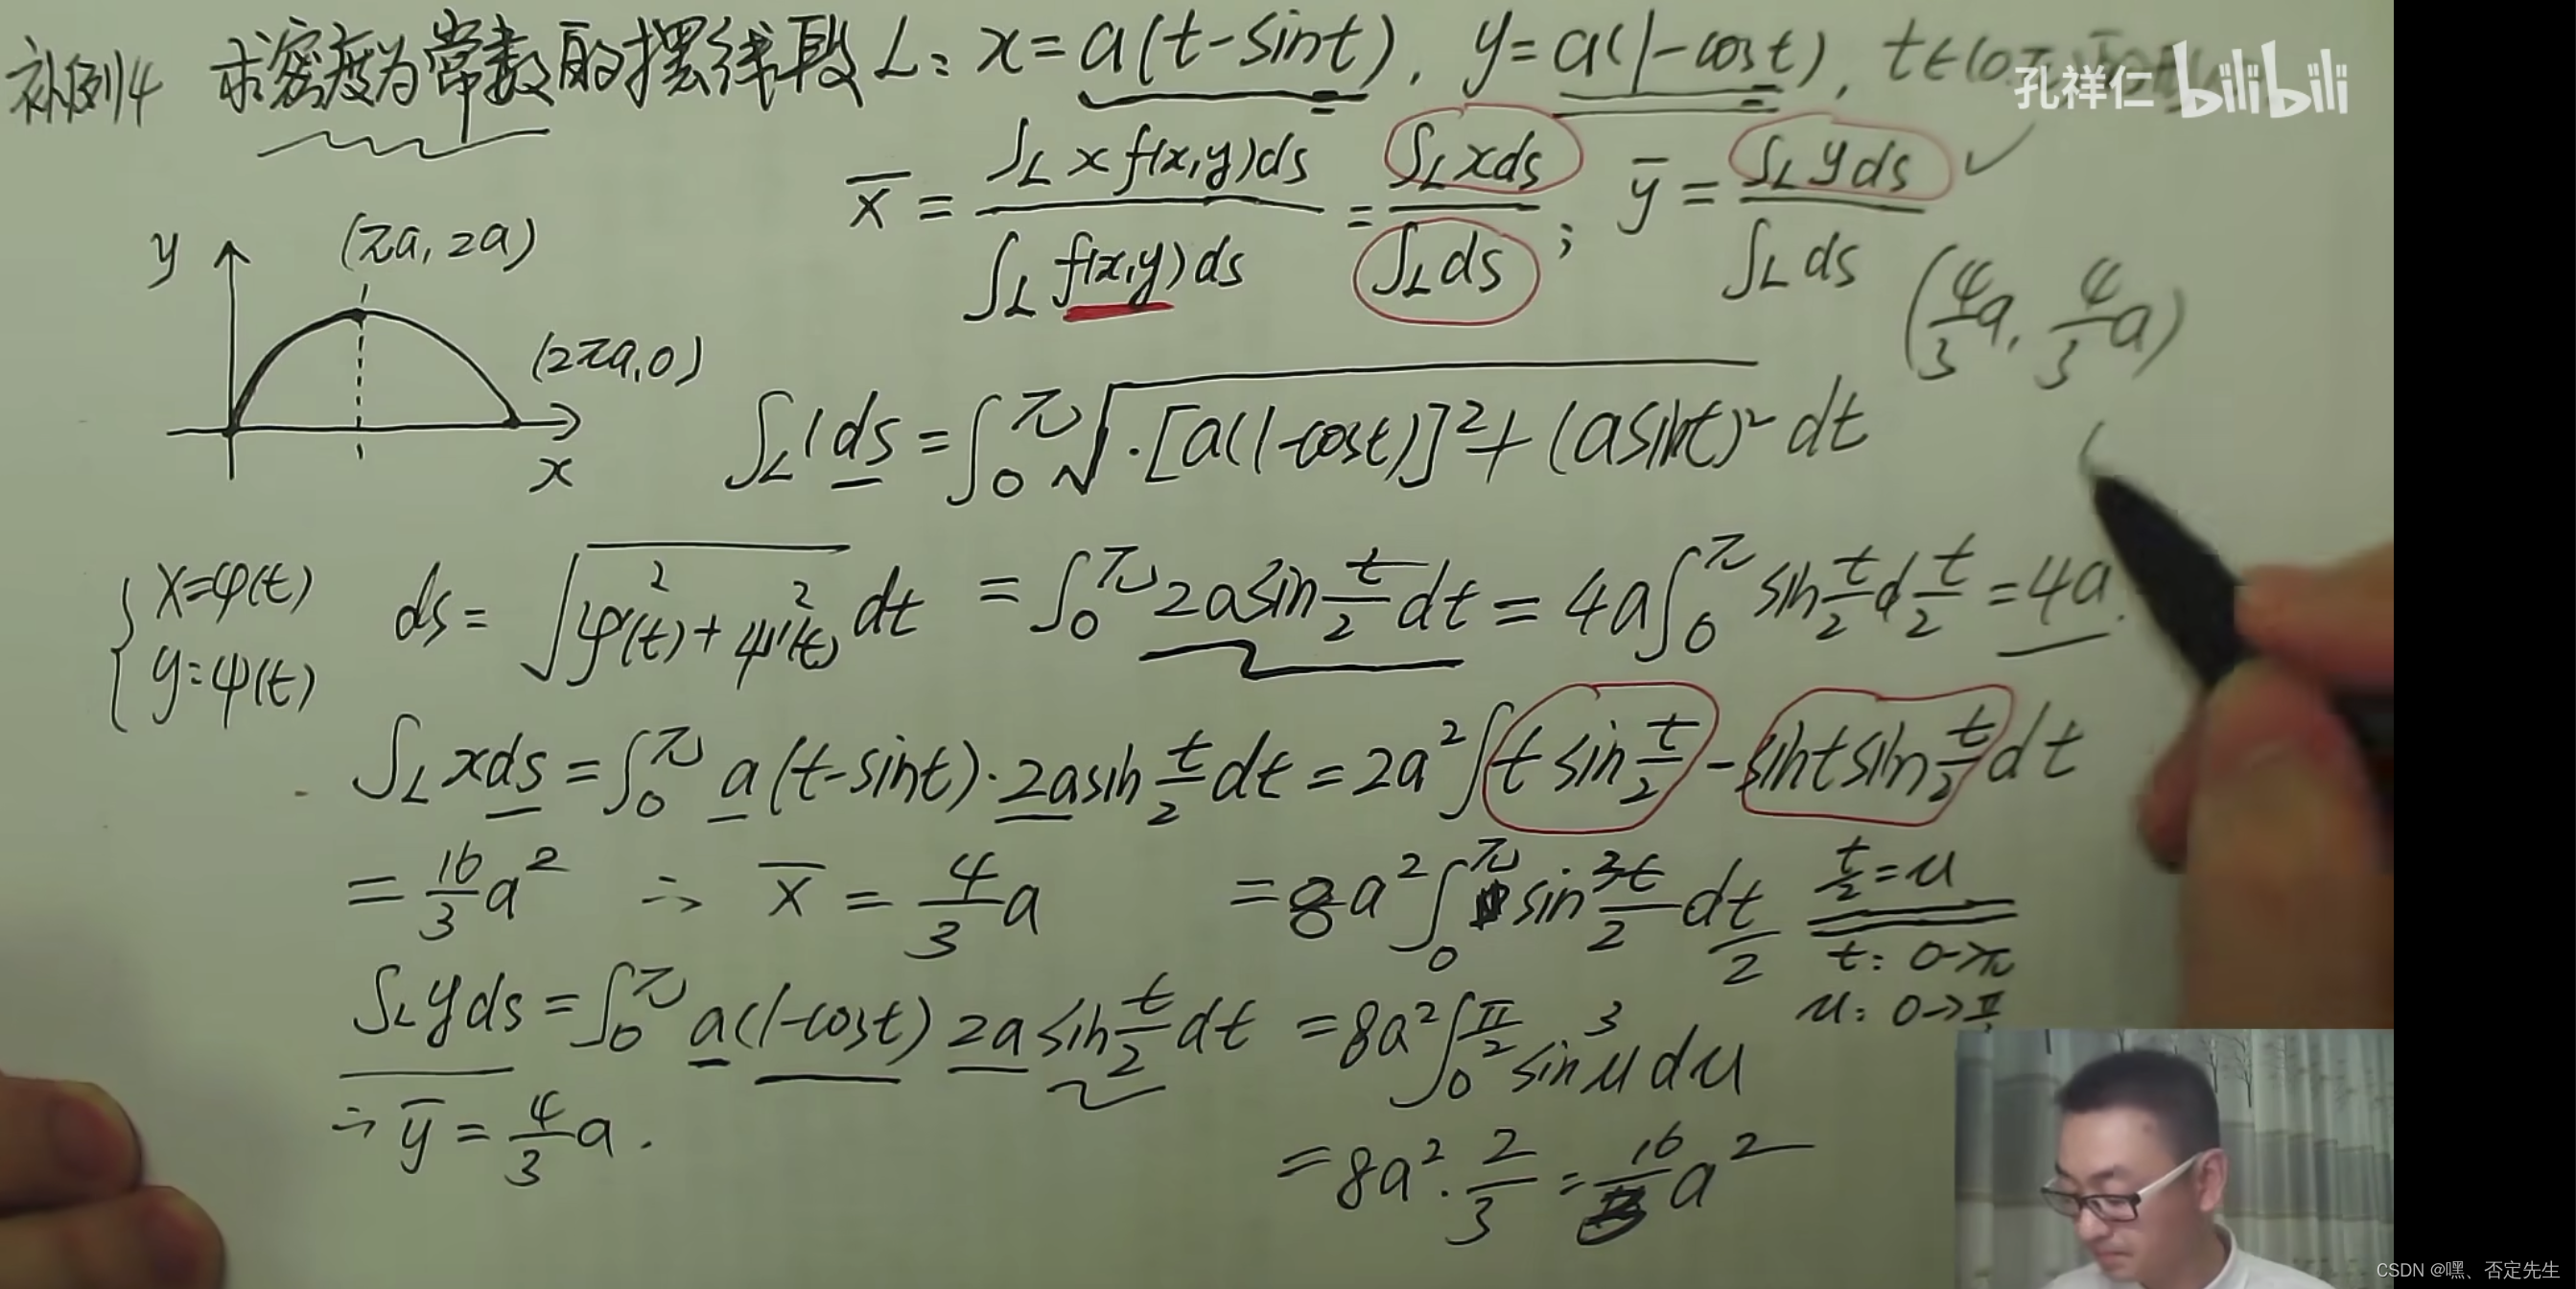 补例4 求密度为常数的摆线段L: x=a(t-sint), y=a(1-cost), t∈[0,π]
孔祥仁 bilibili
x̄ = ∫_L x f(x,y)ds / ∫_L f(x,y)ds = ∫_L xds / ∫_L ds ; ȳ = ∫_L yds / ∫_L ds ✓
(4/3 a, 4/3 a)
y
(πa, 2a)
(2πa, 0)
x
∫_L 1ds = ∫_0^π √([a(1-cost)]²+(asint)²) dt
{ x=φ(t)
y=ψ(t)
ds = √(φ'²(t)+ψ'²(t)) dt
= ∫_0^π 2asin t/2 dt = 4a∫_0^π sin t/2 d t/2 = 4a.
∫_L xds = ∫_0^π a(t-sint)·2asin t/2 dt = 2a²∫ t sin t/2 - sint sin t/2 dt
= 16/3 a² ∴ x̄ = 4/3 a
∫_L yds = ∫_0^π a(1-cost) 2a sin t/2 dt
= 8a²∫_0^π sin³ t/2 d t/2
t/2=u
t: 0→π
u: 0→π
= 8a²∫_0^{π/2} sin³u du
= 8a²·2/3 = 16 a²
∴ ȳ = 4/3 a.
CSDN @嘿、否定先生